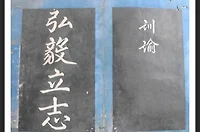 訓諭
弘毅立志